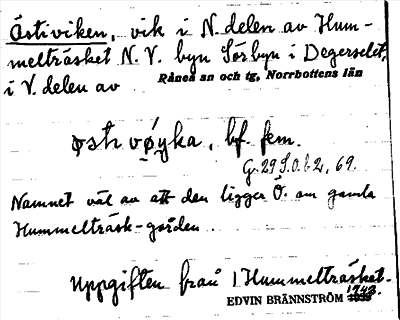 Östiviken, vik i N. delen av Hum-
melträsket N. V. byn Sörbyn i Degerselet,
i V. delen av Råneå sn och tg, Norrbottens län
østi vøyka, bf. fem.
G. 29 S.O.b2, 69.
Namnet väl av att den ligger Ö. om gamla
Hummelträsk-gården.
Uppgiften från 1 Hummelträsket.
EDVIN BRÄNNSTRÖM 1943.